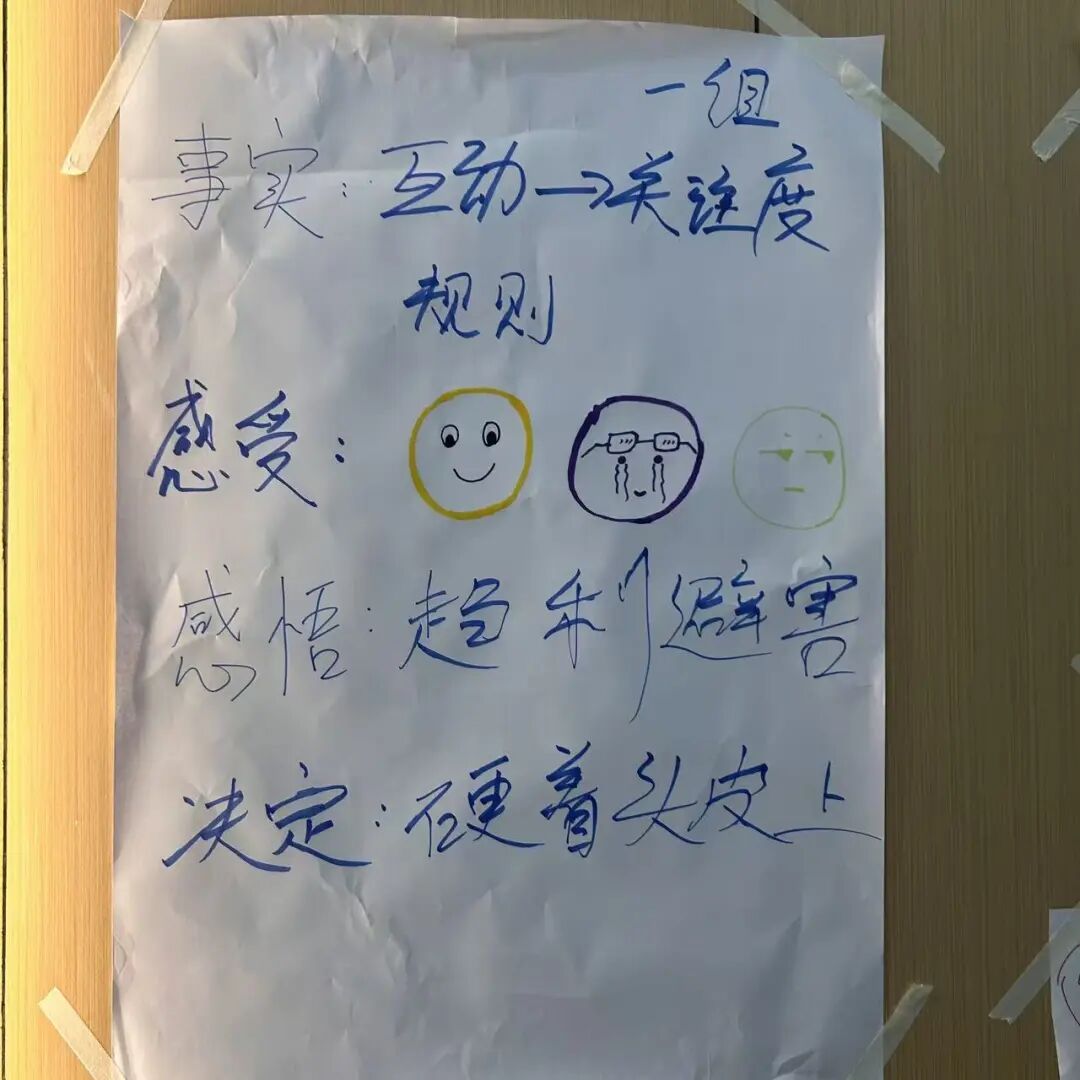 一组
事实：互动→关注度
规则
感受：
感悟：趋利避害
决定：硬着头皮上